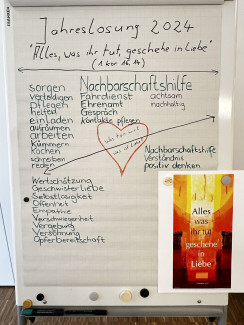 Jahreslosung 2024
"Alles, was ihr tut, geschehe in Liebe"
(1 Kor 16,14)
sorgen
verteidigen
pflegen
helfen
einladen
aufräumen
arbeiten
kümmern
kochen
schreiben
reden
Nachbarschaftshilfe
Fahrdienst
Ehrenamt
Gespräch
Kontakte pflegen
achtsam
nachhaltig
Was ist Liebe?
Nachbarschaftshilfe
Verständnis
positiv denken
Wertschätzung
Geschwisterliebe
Selbstlosigkeit
Offenheit
Empathie
Verschwiegenheit
Vergebung
Versöhnung
Opferbereitschaft
Alles
was
ihr tut
geschehe
in
Liebe